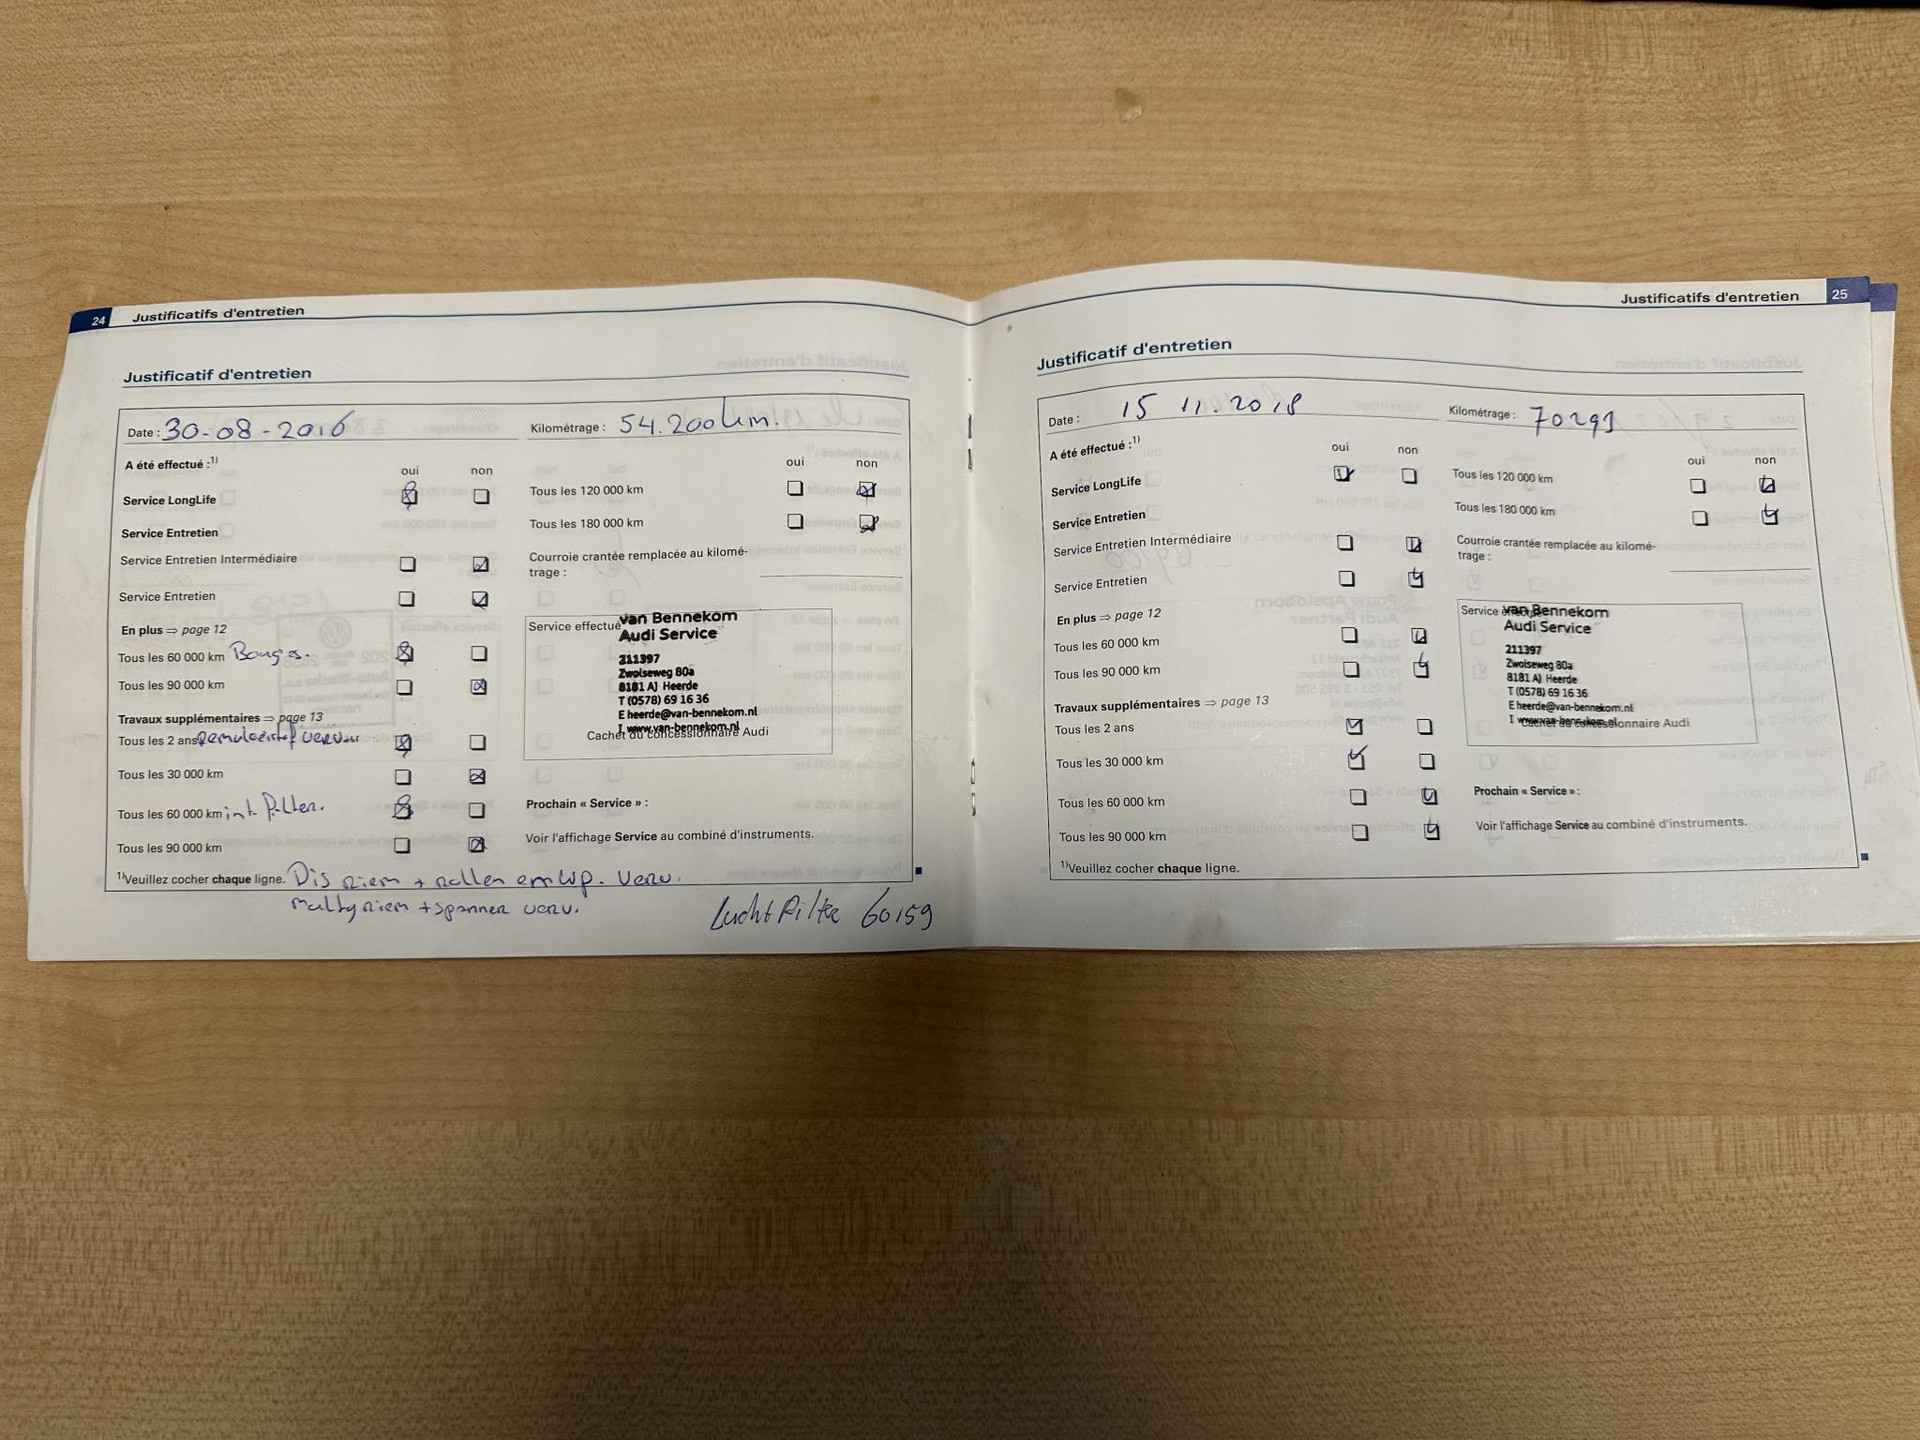 24 Justificatifs d'entretien
Justificatif d'entretien
Date : 30-08-2016 Kilométrage : 54.200 km.
A été effectué :1)
oui non
Service LongLife
Service Entretien
Service Entretien Intermédiaire
Service Entretien
En plus ⇒ page 12
Tous les 60 000 km Bougs.
Tous les 90 000 km
Travaux supplémentaires ⇒ page 13
Tous les 2 ans
Tous les 30 000 km
Tous les 60 000 km int. filter.
Tous les 90 000 km
1)Veuillez cocher chaque ligne. Dis riem + rollen en wp. verv.
multyriem + spanner verv.
oui non
Tous les 120 000 km
Tous les 180 000 km
Courroie crantée remplacée au kilomé-
trage :
Service effectué
van Bennekom
Audi Service
211397
Zwolseweg 80a
8181 AJ Heerde
T (0578) 69 16 36
E heerde@van-bennekom.nl
I www.van-bennekom.nl
Cachet du concessionnaire Audi
Prochain « Service » :
Voir l'affichage Service au combiné d'instruments.
Lucht Filter 60159
Justificatifs d'entretien 25
Justificatif d'entretien
Date : 15 11.2018 Kilométrage : 70291
A été effectué :1)
oui non
Service LongLife
Service Entretien
Service Entretien Intermédiaire
Service Entretien
En plus ⇒ page 12
Tous les 60 000 km
Tous les 90 000 km
Travaux supplémentaires ⇒ page 13
Tous les 2 ans
Tous les 30 000 km
Tous les 60 000 km
Tous les 90 000 km
1)Veuillez cocher chaque ligne.
oui non
Tous les 120 000 km
Tous les 180 000 km
Courroie crantée remplacée au kilomé-
trage :
Service
van Bennekom
Audi Service
211397
Zwolseweg 80a
8181 AJ Heerde
T (0578) 69 16 36
E heerde@van-bennekom.nl
I www.van-bennekom.nl
Cachet du concessionnaire Audi
Prochain « Service » :
Voir l'affichage Service au combiné d'instruments.